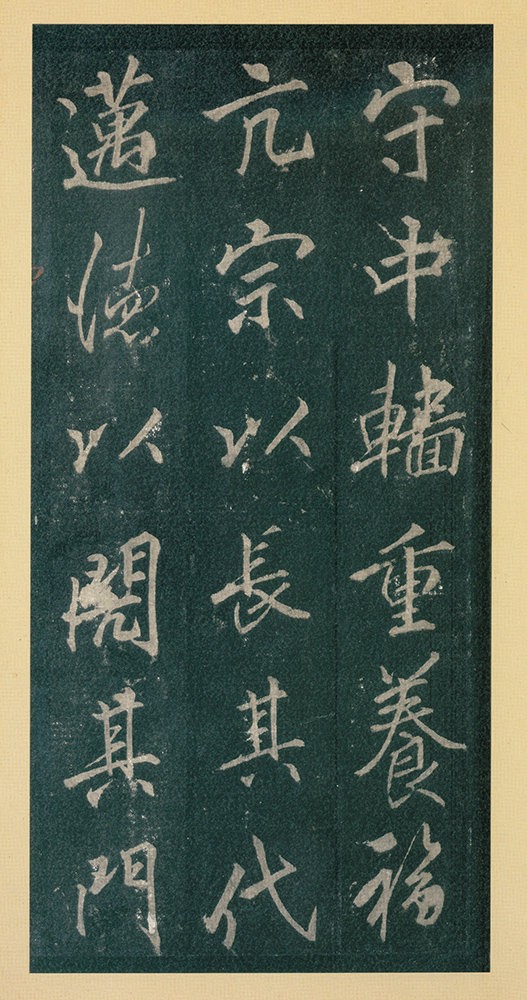 守中輜重養福
亢宗以長其代
邁德以閱其門